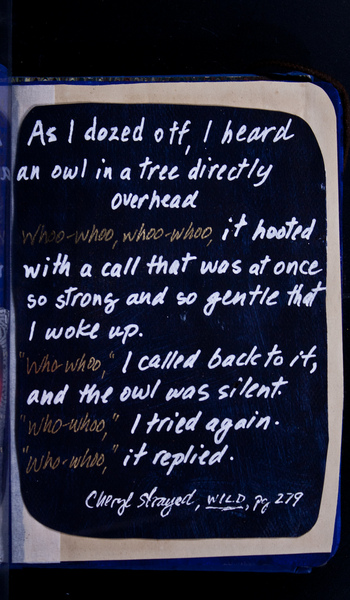 As I dozed off, I heard
an owl in a tree directly
overhead
Whoo-whoo, whoo-whoo, it hooted
with a call that was at once
so strong and so gentle that
I woke up.
"Who-whoo," I called back to it,
and the owl was silent.
"Who-whoo," I tried again.
"Who-whoo," it replied.
Cheryl Strayed, WILD, pg 279